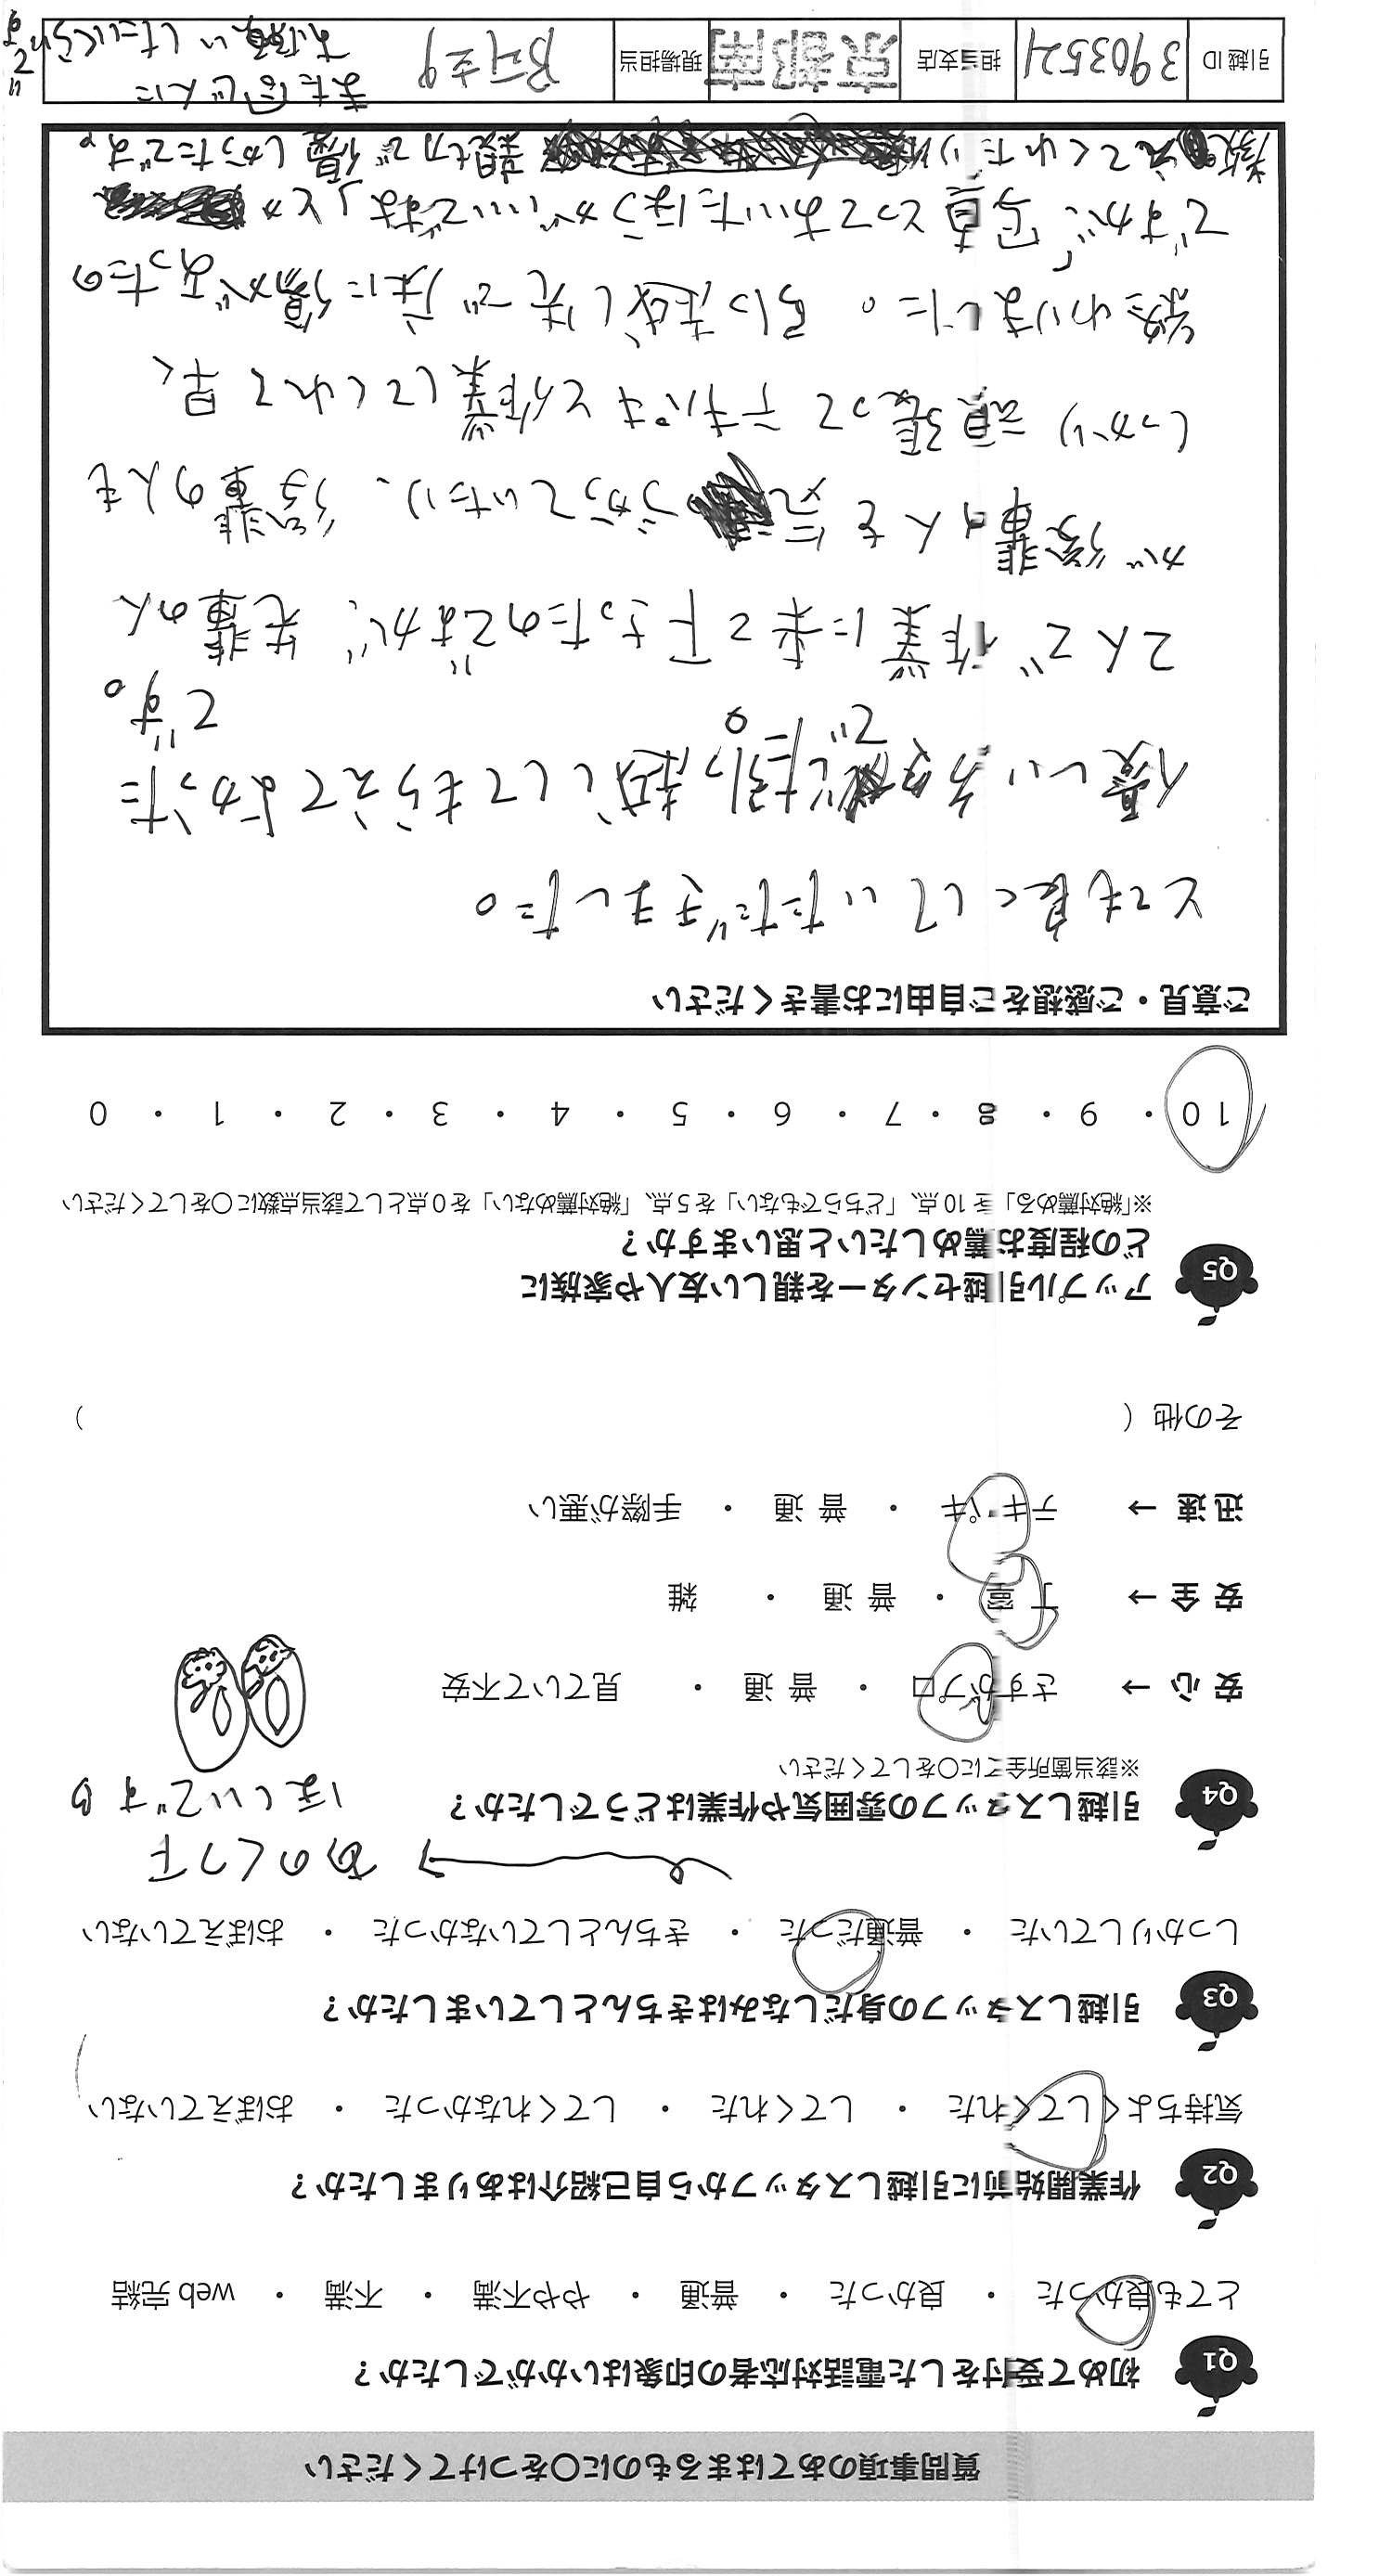 質問事項のあてはまるものに〇をつけてください
Q1 初めて受付をした電話対応者の印象はいかがでしたか?
とても良かった ・ 良かった ・ 普通 ・ やや不満 ・ 不満 ・ web 完結
Q2 作業開始前に引越しスタッフから自己紹介はありましたか?
気持ちよくしてくれた ・ してくれた ・ してくれなかった ・ おぼえていない
Q3 引越しスタッフの身だしなみはきちんとしていましたか?
しっかりしていた ・ 普通だった ・ きちんとしていなかった ・ おぼえていない
あのくつ下
ほしいです
Q4 引越しスタッフの雰囲気や作業はどうでしたか?
※該当箇所全てに〇をしてください
安心 → さすがプロ ・ 普通 ・ 見ていて不安
安全 → 丁寧 ・ 普通 ・ 雑
迅速 → テキパキ ・ 普通 ・ 手際が悪い
その他 ( )
Q5 アップル引越センターを親しい友人や家族に
どの程度お薦めしたいと思いますか?
※「絶対薦める」を10点、「どちらでもない」を5点、「絶対薦めない」を0点として該当点数に〇をしてください
10 ・ 9 ・ 8 ・ 7 ・ 6 ・ 5 ・ 4 ・ 3 ・ 2 ・ 1 ・ 0
ご意見・ご感想をご自由にお書きください
とても良くしていただきました。
優しい方々でした。引っ越ししてもらえてよかった
です。
2人で作業に来て下さったのですが、先輩の人
が後輩の人を気づかっていたり、後輩の人も
しっかり頑張ってテキパキと作業してくれて早く
終わりました。引っ越し先で床に傷があったの
ですが、「写真とっておいたほうがいいですよ」とか
教えてくれたり 親切で優しかったです。
引越ID 3903521 担当支店 京都南 現場担当
また同じ人に
お願いしたいくらい
です